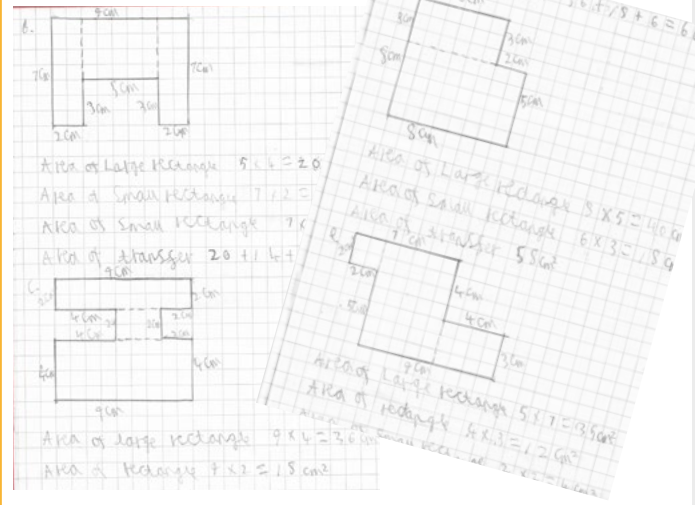 B.
9cm
7cm
7cm
5cm
3cm
3cm
2cm
2cm
Area of Large rectangle 5 × 4 = 20
Area of Small rectangle 7 × 2 =
Area of Small rectangle 7 ×
Area of transfer 20 + 14 +
C.
9cm
2cm
2cm
4cm
2cm
2cm
2cm
4cm
2cm
4cm
4cm
9cm
Area of large rectangle 9 × 4 = 36 cm
Area of rectangle 9 × 2 = 18 cm²
+ 18 + 6 = 6
3cm
3cm
2cm
8cm
5cm
8cm
Area of Large rectangle 8 × 5 = 40 cm
Area of Small rectangle 6 × 3 = 18 c
Area of transfer 58cm²
7cm
2cm
2cm
4cm
5cm
4cm
3cm
9cm
Area of Large rectangle 5 × 7 = 35cm²
Area of rectangle 4 × 3 = 12cm²